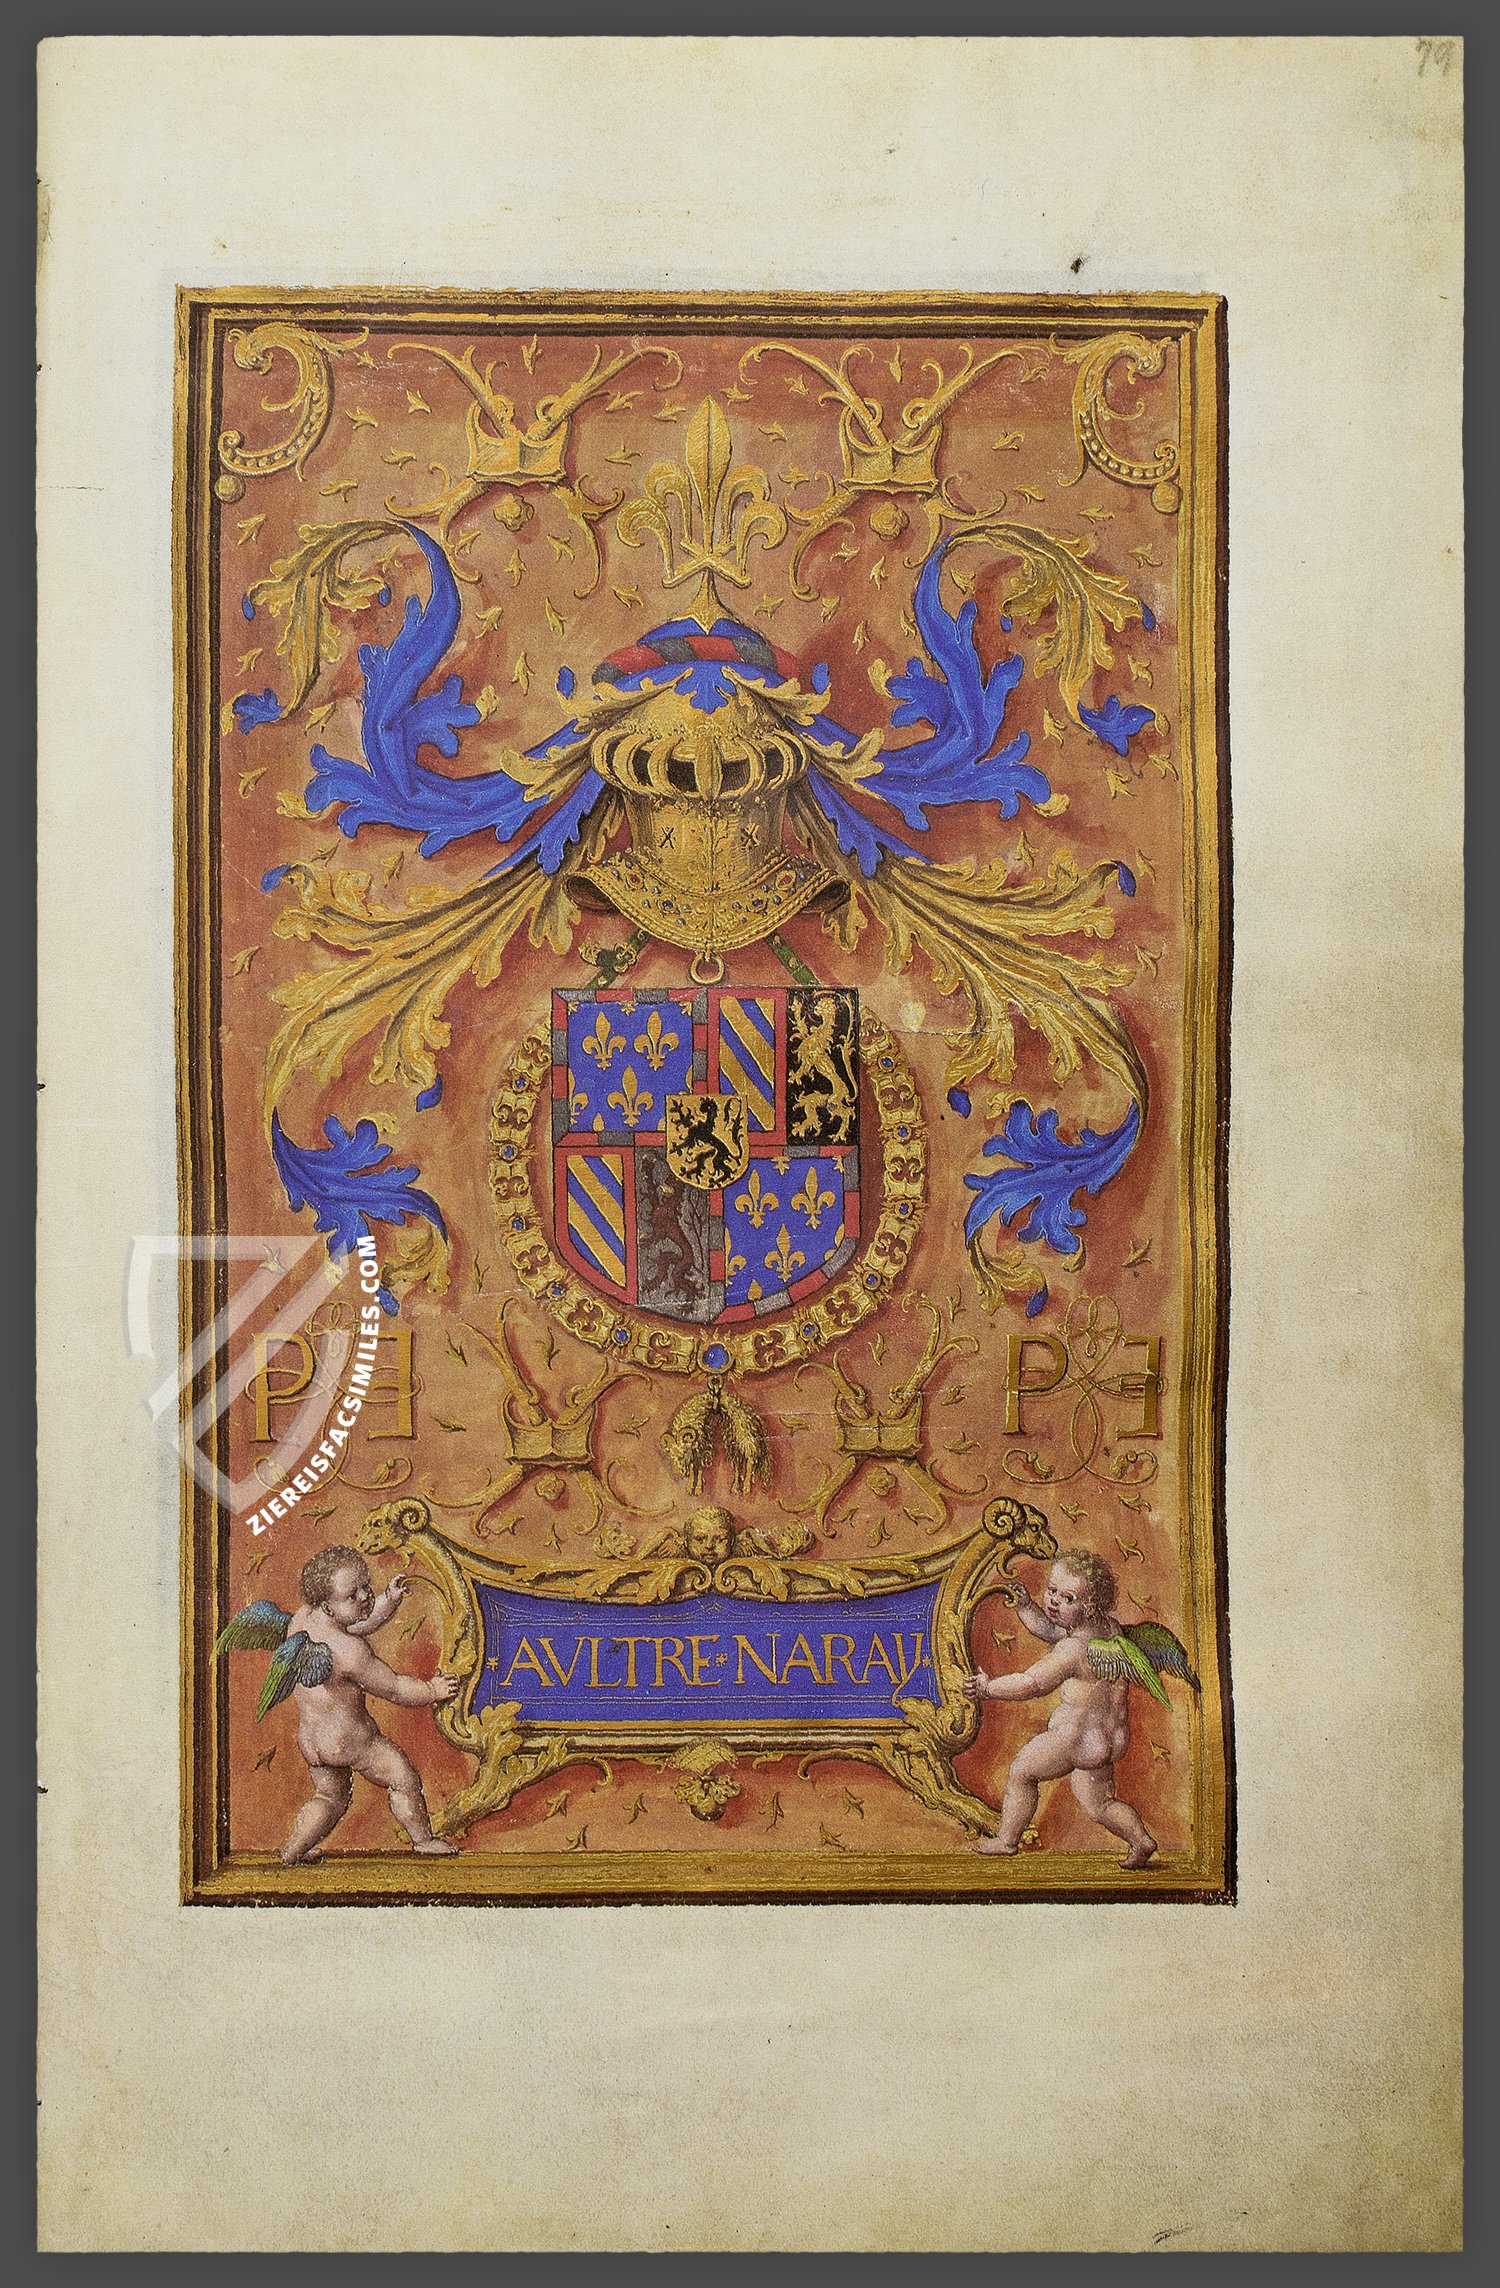 79
P E
P E
AVLTRE * NARAY *
ZIEREISFACSIMILES.COM